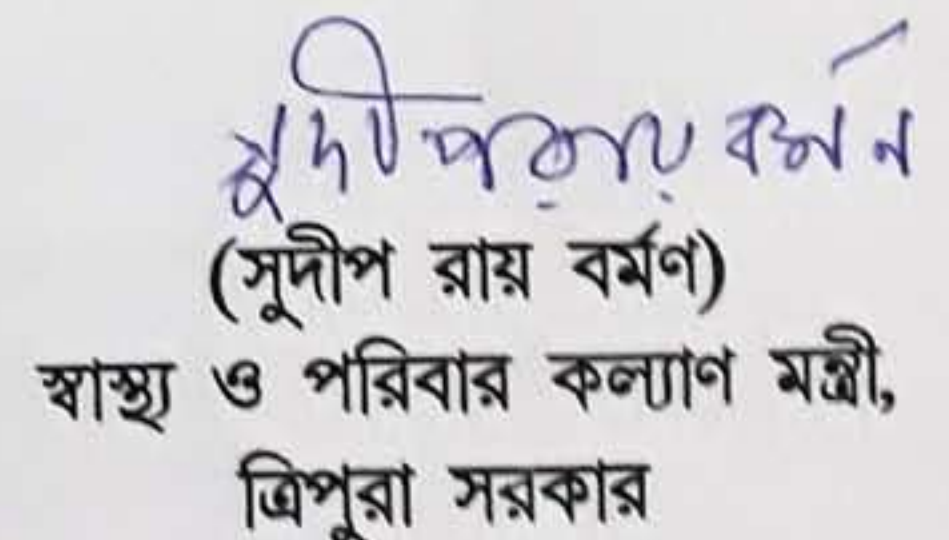 সুদীপ রায় বর্মন
(সুদীপ রায় বর্মণ)
স্বাস্থ্য ও পরিবার কল্যাণ মন্ত্রী,
ত্রিপুরা সরকার